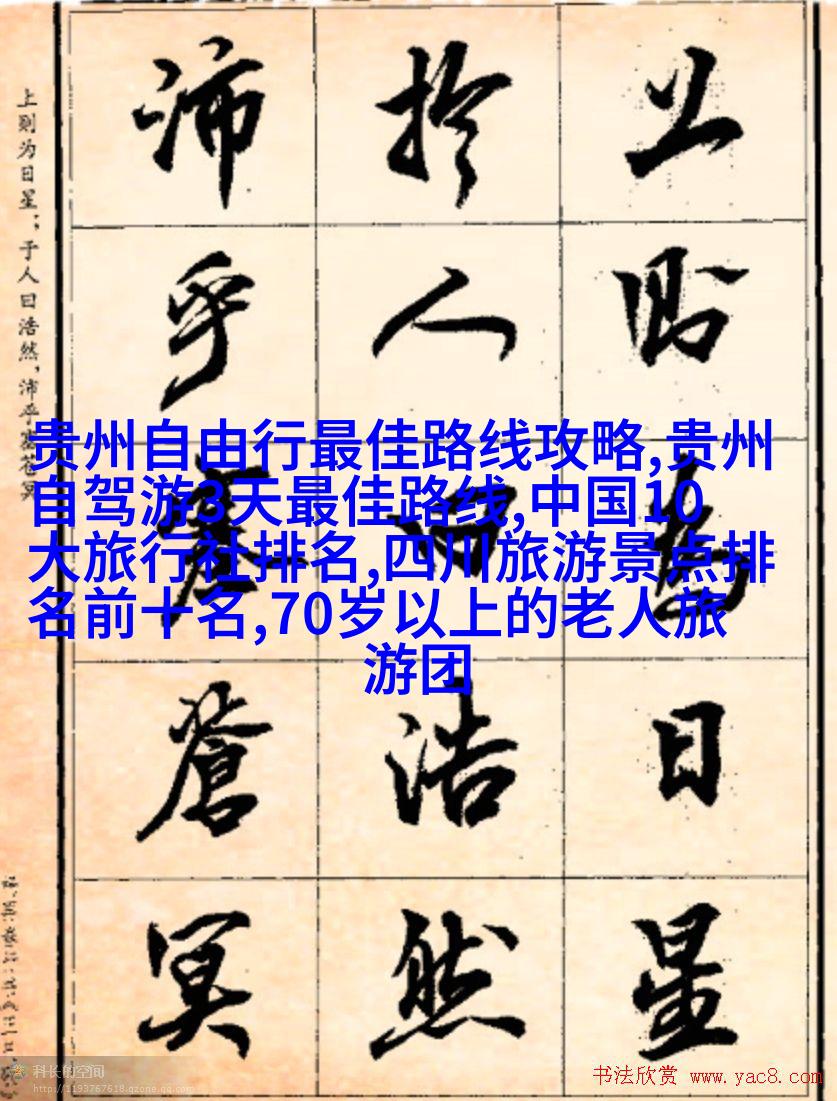 上则为日星；于人曰浩然，沛乎塞苍冥
上則為日星
扵人曰浩然
沛乎塞蒼冥
贵州自由行最佳路线攻略,贵州
自驾游3天最佳路线,中国10
大旅行社排名,四川旅游景点排
名前十名,70岁以上的老人旅
游团
科长的空间
http://1193767618.qzone.qq.com
书法欣赏 www.yac8.com